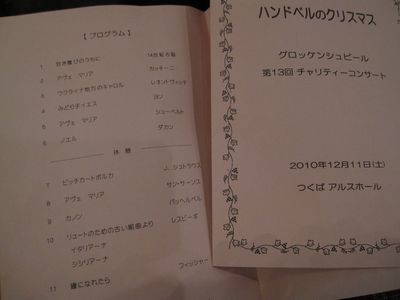 【 プログラム 】
1 甘き喜びのうちに 14世紀古謡
2 アヴェ マリア カッチーニ
3 ウクライナ地方のキャロル レオントヴィッチ
4 みどり子イエス ヨン
5 アヴェ マリア シューベルト
6 ノエル ダカン
休 憩
7 ピッチカートポルカ J. シュトラウス
8 アヴェ マリア サン・サーンス
9 カノン パッヘルベル
10 リュートのための古い組曲より レスピーギ
イタリアーナ
シシリアーナ
11 鐘になれたら フィッシャー
ハンドベルのクリスマス
グロッケンシュピール
第13回 チャリティーコンサート
2010年12月11日(土)
つくば アルスホール